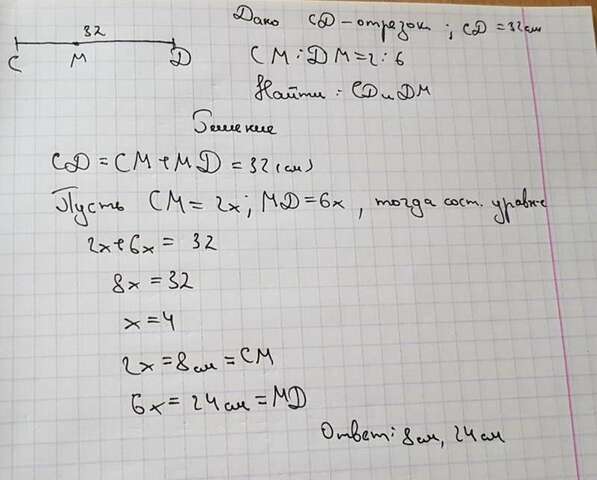 32
C M D
Дано CD - отрезок ; CD = 32 см
CM : DM = 2 : 6
Найти : CD и DM
Решение
CD = CM + MD = 32 (см)
Пусть CM = 2x ; MD = 6x , тогда сост. уравне
2x + 6x = 32
8x = 32
x = 4
2x = 8 см = CM
6x = 24 см = MD
Ответ: 8 см, 24 см